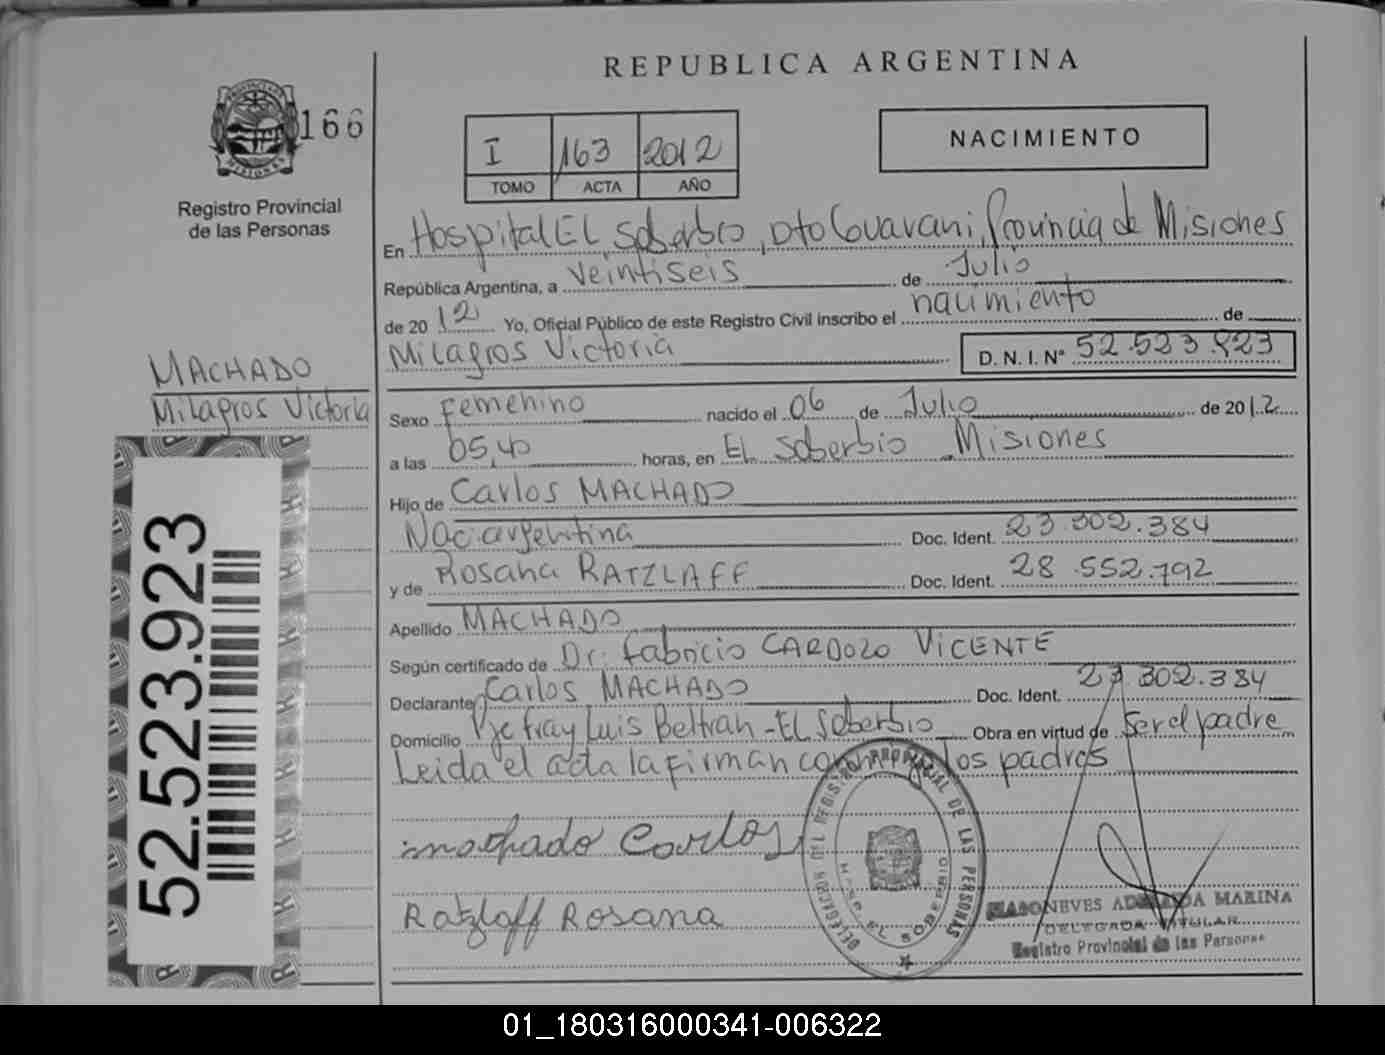 REPUBLICA ARGENTINA
166
Registro Provincial
de las Personas
I 163 2012
TOMO ACTA AÑO
NACIMIENTO
En Hospital EL Soberbio, Dto Guarani, Provincia de Misiones
República Argentina, a veintiseis de Julio
de 2012 Yo, Oficial Público de este Registro Civil inscribo el nacimiento de
Milagros Victoria D. N. I. N° 52.523.923
MACHADO
Milagros Victoria
Sexo Femenino nacido el 06 de Julio de 2012
a las 05,40 horas, en EL Soberbio Misiones
Hijo de Carlos MACHADO
Nac. argentina Doc. Ident. 23.302.384
y de Rosana RATZLAFF Doc. Ident. 28.552.792
Apellido MACHADO
Según certificado de Dr. Fabricio CARDOZO VICENTE
Declarante Carlos MACHADO Doc. Ident. 23.302.384
Domicilio Pje fray Luis Beltran - EL Soberbio Obra en virtud de Ser el padre
Leida el acta la firman conmigo los padres
52.523.923
machado Carlos
Ratzlaff Rosana
DELEGACION DEL REGISTRO PROVINCIAL DE LAS PERSONAS
EL SOBERBIO
MARINA
DELEGADA TITULAR
Registro Provincial de las Personas
01_180316000341-006322